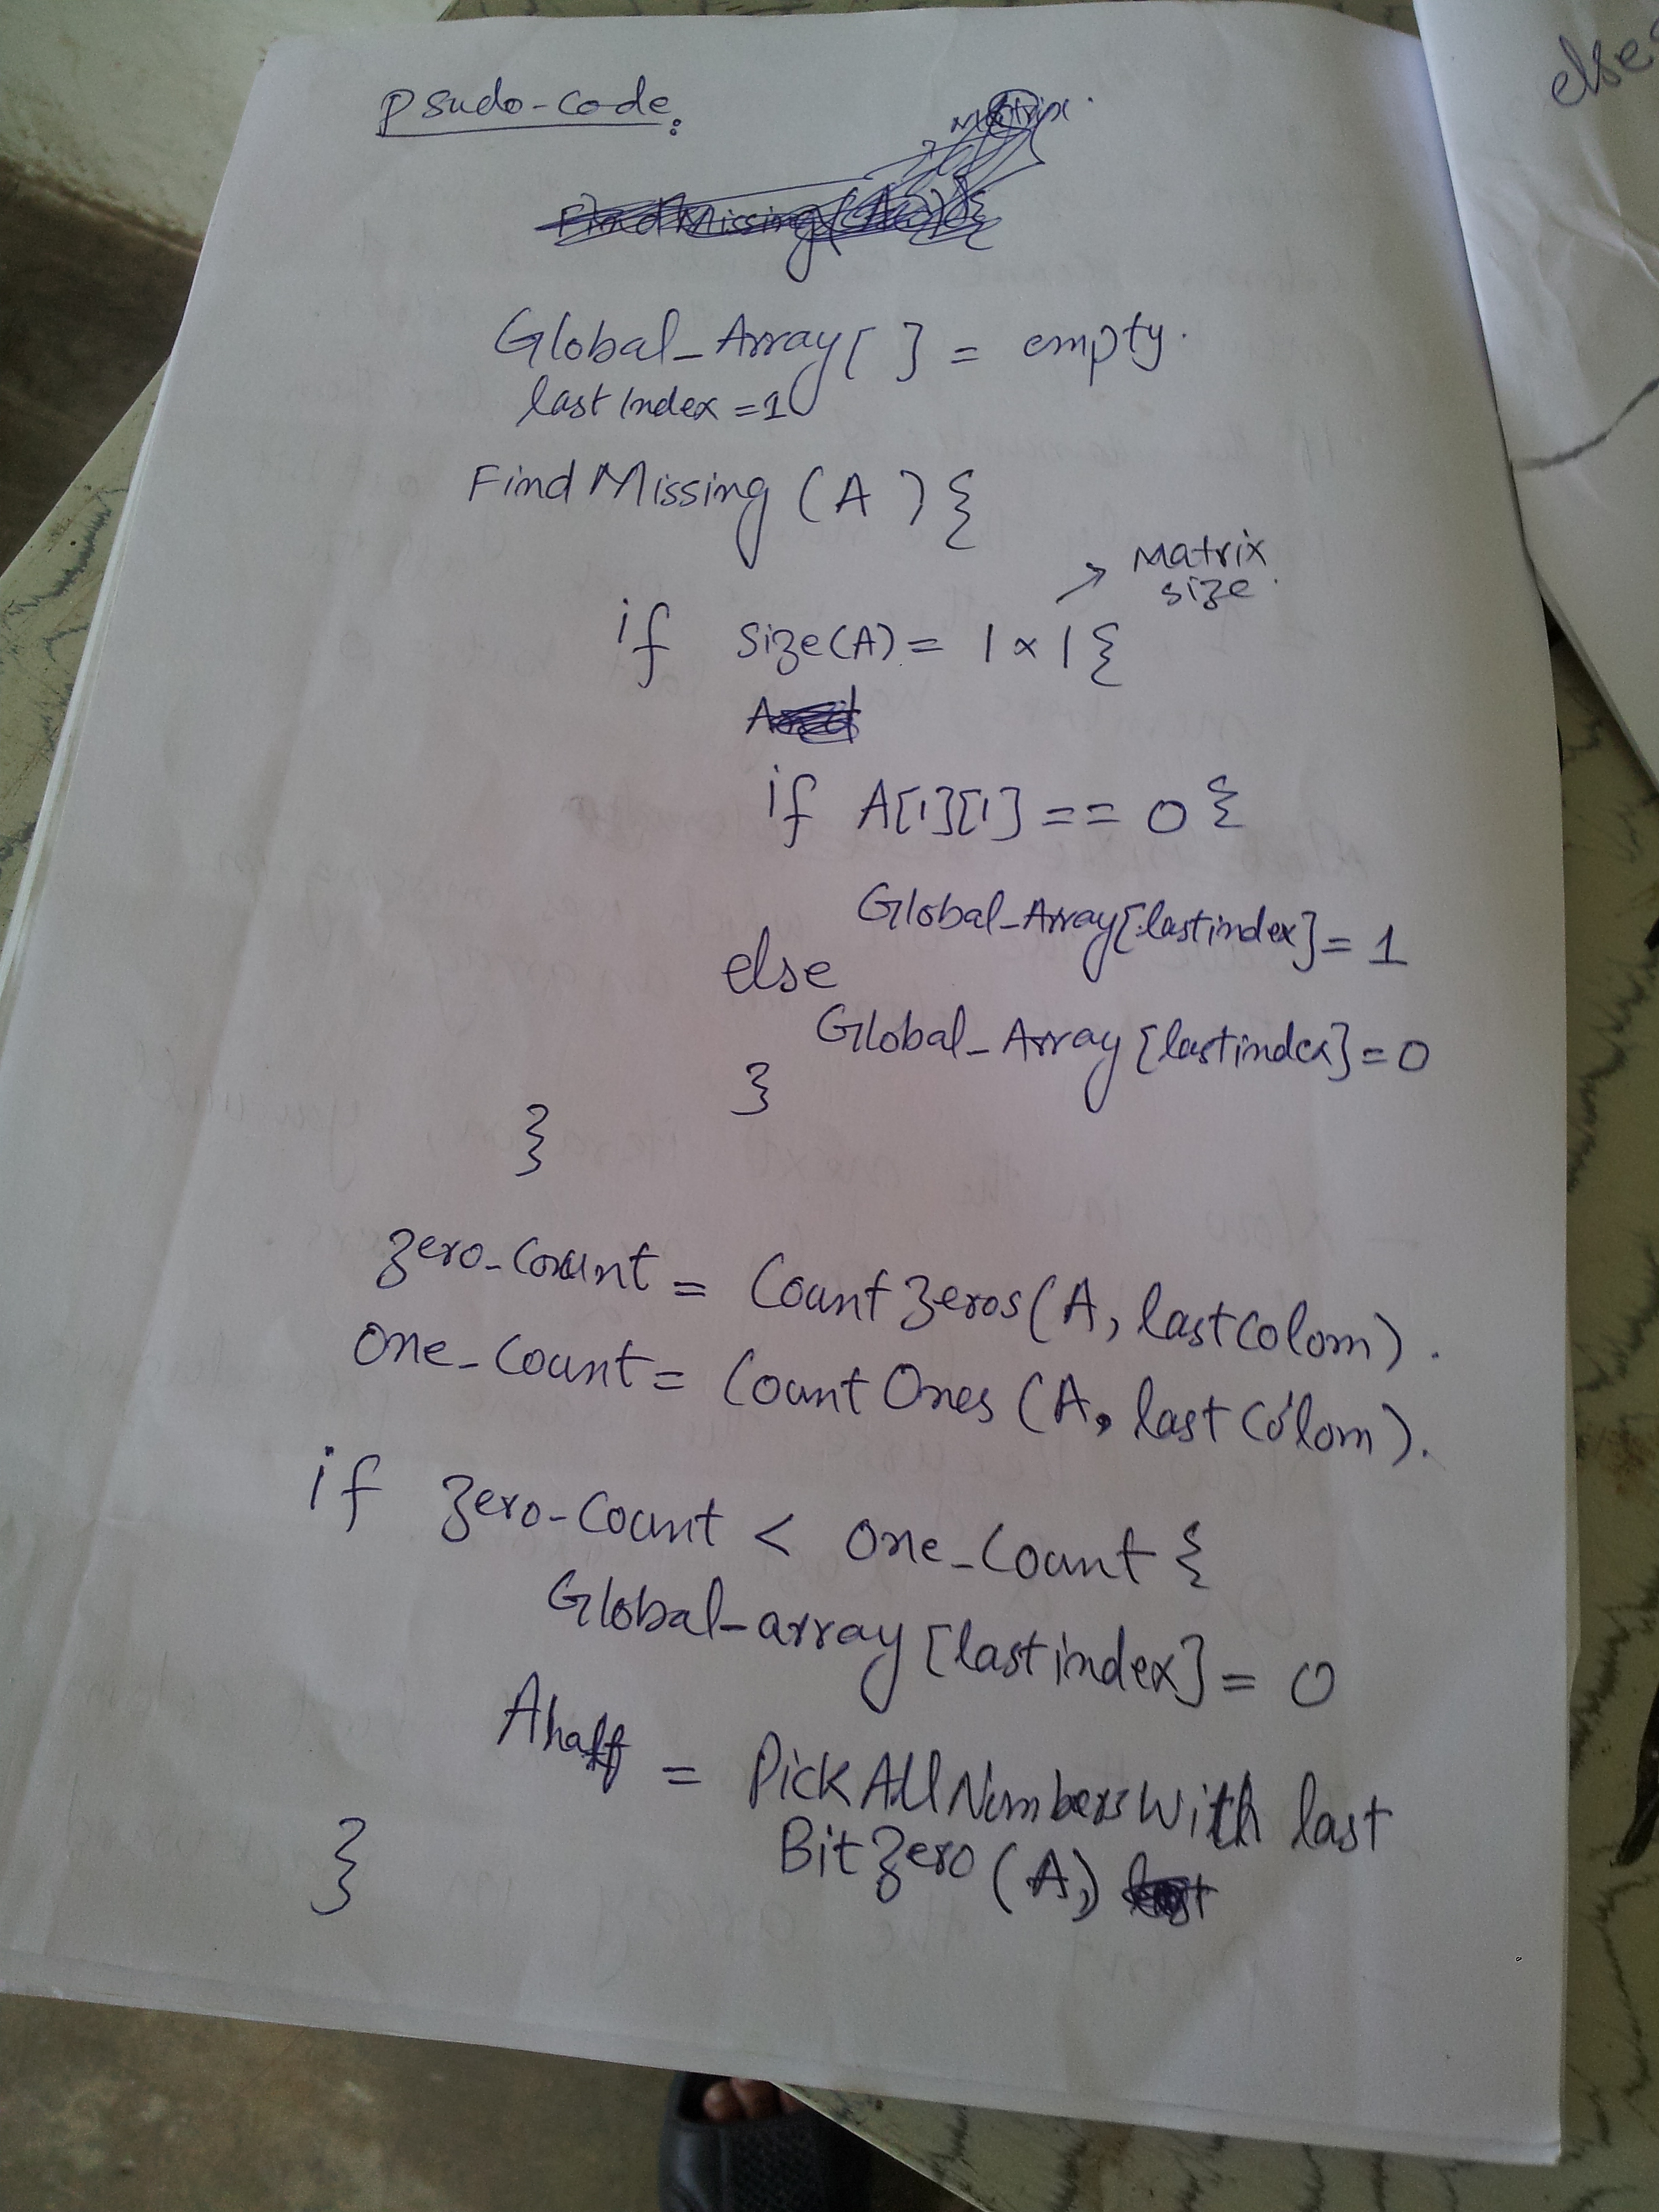 Psudo-Code:
Global_Array[] = empty.
lastIndex=1
FindMissing (A) {
if size(A) = 1×1 {
→ Matrix size.
if A[1][1] == 0 {
Global_Array[lastindex]=1
else
Global_Array[lastindex]=0
}
}
zero-Count = CountZeros(A, lastColom).
One_Count = CountOnes (A, lastColom).
if zero-Count < One_Count {
Global_array[lastindex] = 0
Ahalf = PickAllNumberswith last
Bitzero (A)
}
else